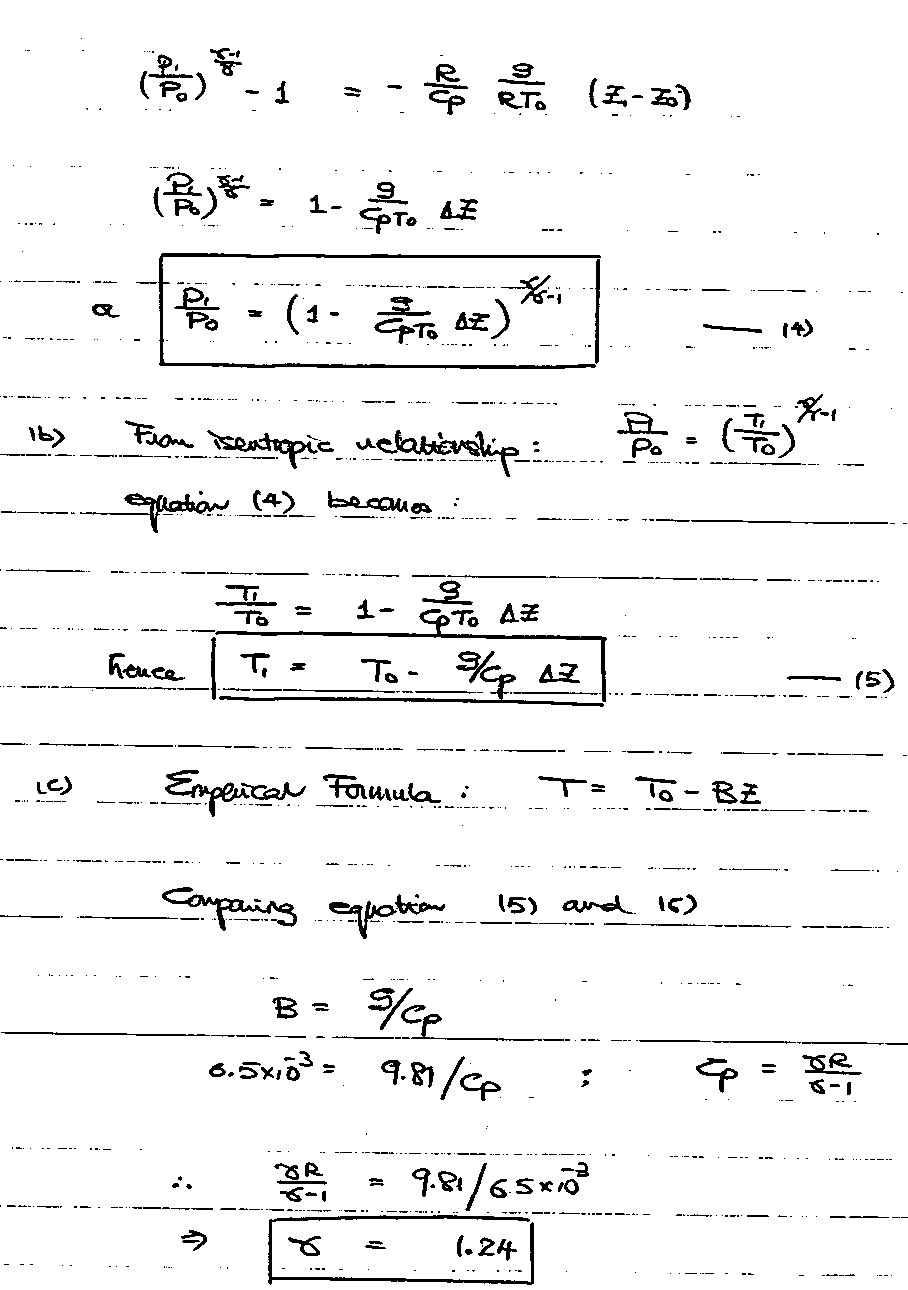 (P₁/P₀)^((γ-1)/γ) - 1 = - R/Cp g/RT₀ (Z₁-Z₀)
(P₁/P₀)^((γ-1)/γ) = 1 - g/CpT₀ ΔZ
or P₁/P₀ = (1 - g/CpT₀ ΔZ)^(γ/γ-1) — (4)
1b) From isentropic relationship : P₁/P₀ = (T₁/T₀)^(γ/γ-1)
equation (4) becomes :
T₁/T₀ = 1 - g/CpT₀ ΔZ
hence T₁ = T₀ - g/Cp ΔZ — (5)
1c) Emperical Formula : T = T₀ - BZ
Comparing equation (5) and (6)
B = g/Cp
6.5×10⁻³ = 9.81/Cp ; Cp = γR/γ-1
∴ γR/γ-1 = 9.81/6.5×10⁻³
⇒ γ = 1.24